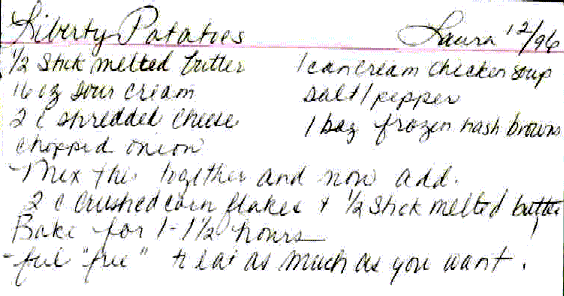 Liberty Potatoes Laura 12/96
1/2 stick melted butter 1 can cream chicken soup
16 oz sour cream salt/pepper
2 c shredded cheese 1 bag frozen hash browns
chopped onion
Mix this together and now add.
2 c crushed corn flakes + 1/2 stick melted butter
Bake for 1-1 1/2 hours
-feel "free" to eat as much as you want.